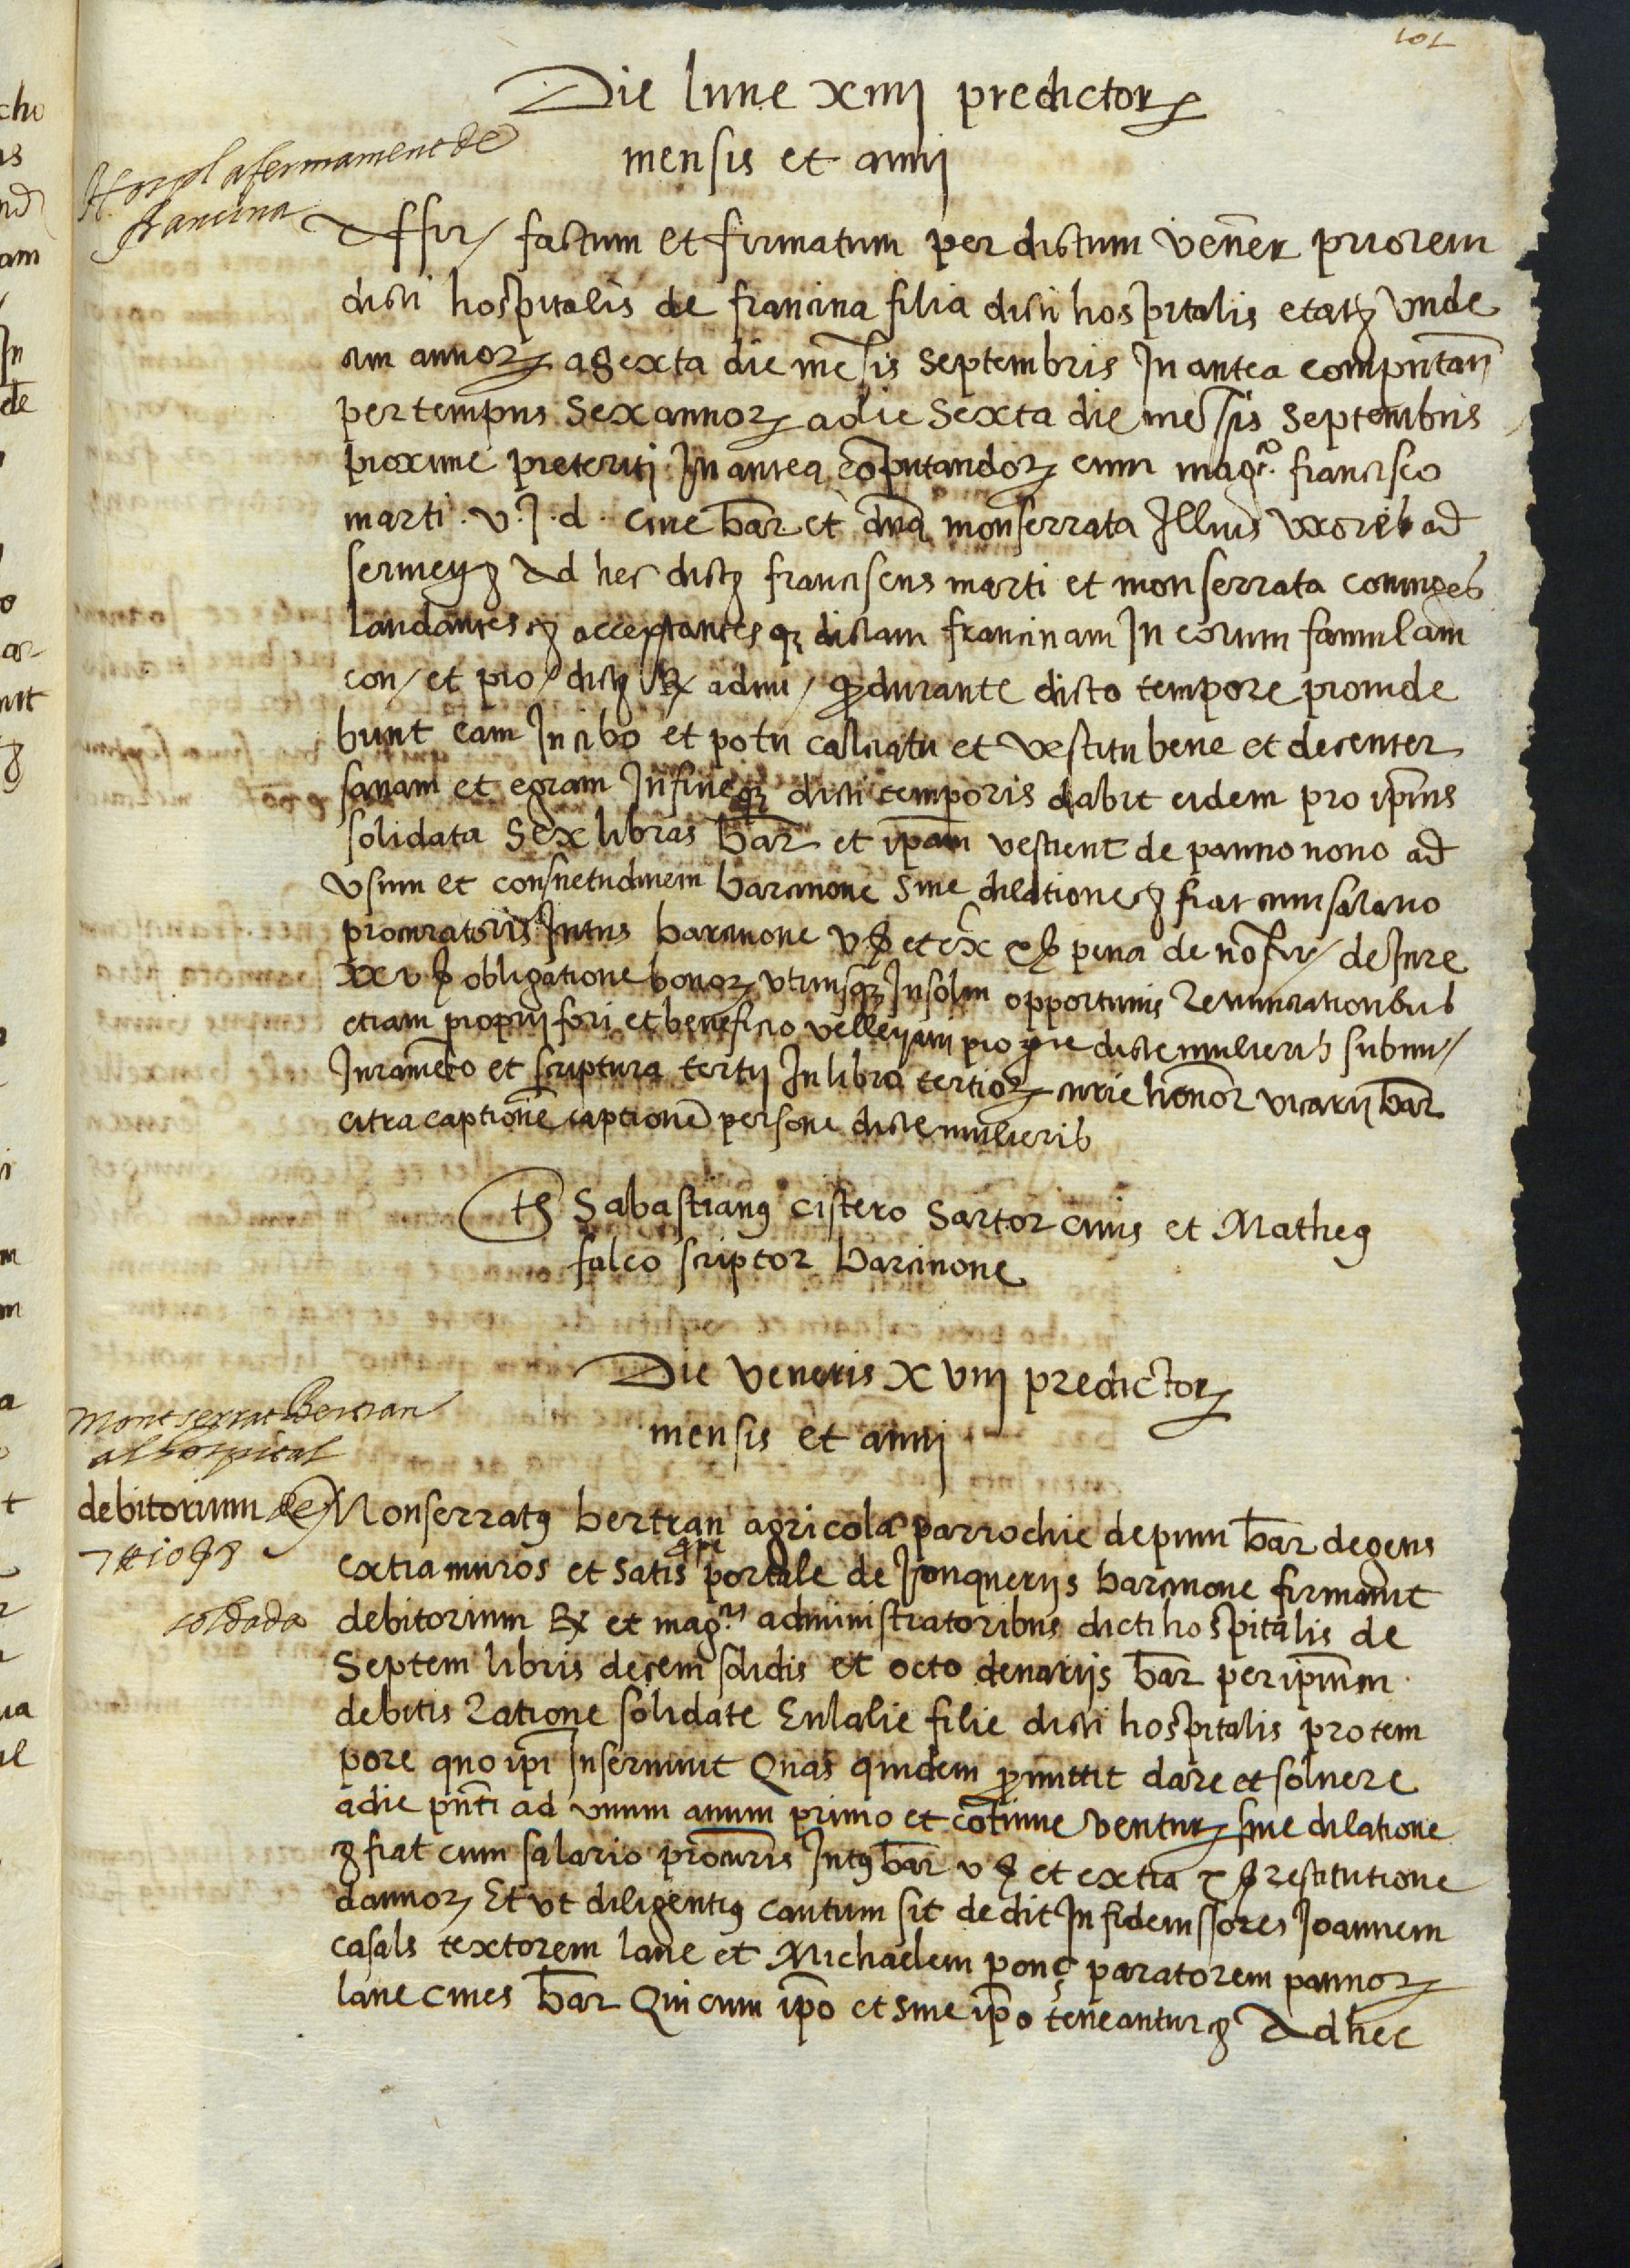 101
Die lune xiiij predictorꝝ
mensis et anni
Hospital afermament de
francina
Affir/ factum et firmatum per dictum vener priorem
dicti hospitalis de francina filia dicti hospitalis etatꝭ vnde
cim annorꝝ a sexta die mēsis Septembris In antea computan̄
per tempus Sex annorꝝ a die Sexta die mēsis Septembris
proxime preteriti In antea cōputandorꝝ cum magco. francisco
marti. v. J. d. ciue bar̄ et dn̄a monserrata Illius vxore ad
seruicꝫ Ad hec dictꝰ franciscus marti et monserrata coniuges
laudantes ꝫ acceptantes qꝫ dictam francinam In eorum famulam
con/ et pro/ dictꝭ Rx admi/ ꝙ durante dicto tempore prouide
bunt eam In cibo et potu calciatu et vestitu bene et decenter
sanam et egram In fine qꝫ dicti temporis dabit eidem pro ipīus
solidata Sex libras bar̄ et ipam̄ vestient de panno nouo ad
vsum et consuetudinem barcinone Sine dilatione ꝫ fiat cum salario
procuratoris Intus barcinone v ẞ et ex x ẞ pena de nō fir/ de Jure
xx v ẞ obligatione bonorꝝ vtriusqꝫ Insolm̄ opportunis Renunciationibus
etiam proprij fori et beneficio velleyani pro dicte mulieris submi/
Juramēto et scriptura tertij In libro tertiorꝝ curie honor̄ vicarij bar̄
citra captionē captionē persone dicte mulieris
ts̄ Sabastianꝰ cistero Sartor ciuis et Matheꝰ
falco scriptor barcinone
Die veneris xviij predictorꝝ
mensis et anni
Montserrat Bertran
al hospital
debitorium de
7 ₶ 10 ẞ 8
soldada
Monserratꝰ bertran agricola parrochie de pinu bar̄ degens
extra muros et satis prope portale de Jonquerijs barcinone firmauit
debitorium Rx et magcis administratoribus dicti hospitalis de
Septem libris decem solidis et octo denarijs bar̄ per ipsum
debitis Ratione solidate Eulalie filie dicti hospitalis pro tem
pore quo ipī Inseruiuit Quas quidem promittit dare et soluere
a die pn̄ti ad vnum annum primo et cōtinue venturꝝ sine dilatione
ꝫ fiat cum salario procur̄is Intꝰ bar̄ v ẞ et extra x ẞ restitutione
dannorꝝ Et vt diligentiꝰ cautum sit dedit In fideiussores Joannem
casals textorem lane et Michaelem ponç paratorem pannorꝝ
lane ciues bar̄ Qui cum ipō et sine ipō teneantur ꝫ Ad hec